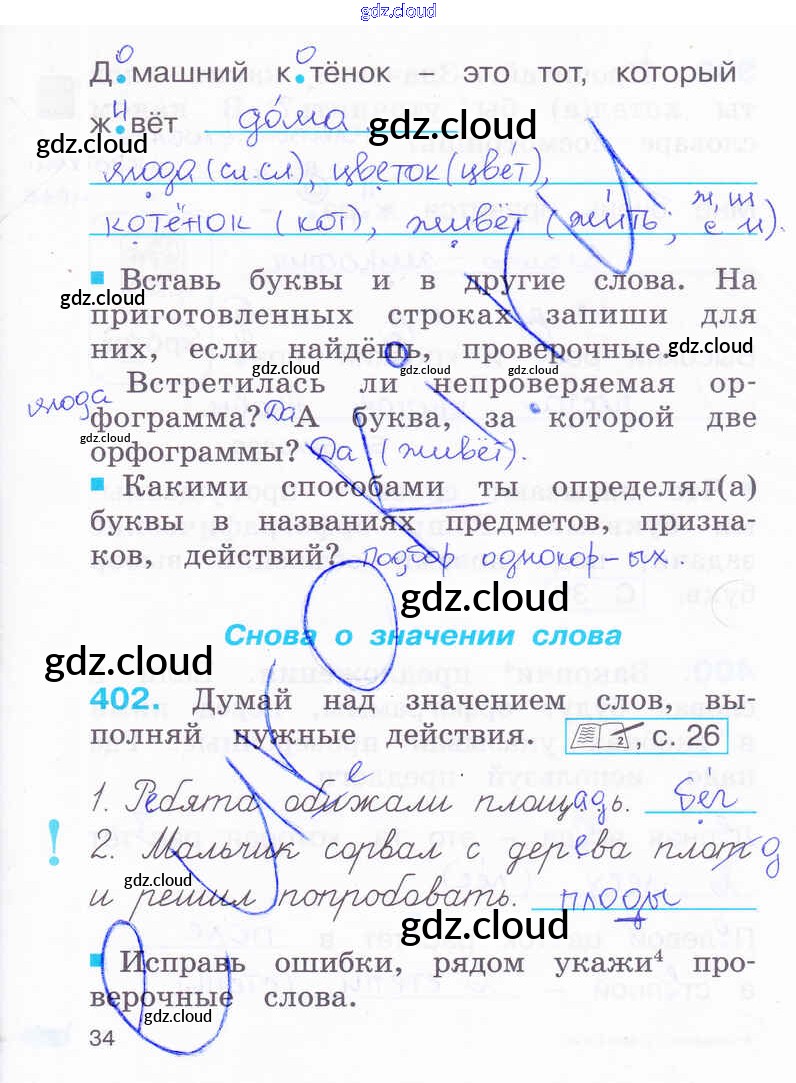 gdz.cloud
Д о машний к о тёнок – это тот, который
ж и вёт дома.
ягода (сл.сл), цветок (цвет),
котёнок (кот), живёт (жить, ж, ш с и).
Вставь буквы и в другие слова. На
приготовленных строках запиши для
них, если найдёшь, проверочные.
ягода Встретилась ли непроверяемая ор-
фограмма? Да А буква, за которой две
орфограммы? Да (живёт).
Какими способами ты определял(а)
буквы в названиях предметов, призна-
ков, действий? Подбор однокор-ых.
Снова о значении слова
402. Думай над значением слов, вы-
полняй нужные действия. , с. 26
1. Ребята обижали площадь. бег
е
! 2. Мальчик сорвал с дерева плот д
и решил попробовать. плоды
Исправь ошибки, рядом укажи⁴ про-
верочные слова.
34
gdz.cloud
gdz.cloud
gdz.cloud
gdz.cloud
gdz.cloud
gdz.cloud
gdz.cloud
gdz.cloud
gdz.cloud
gdz.cloud
gdz.cloud
gdz.cloud
gdz.cloud
gdz.cloud